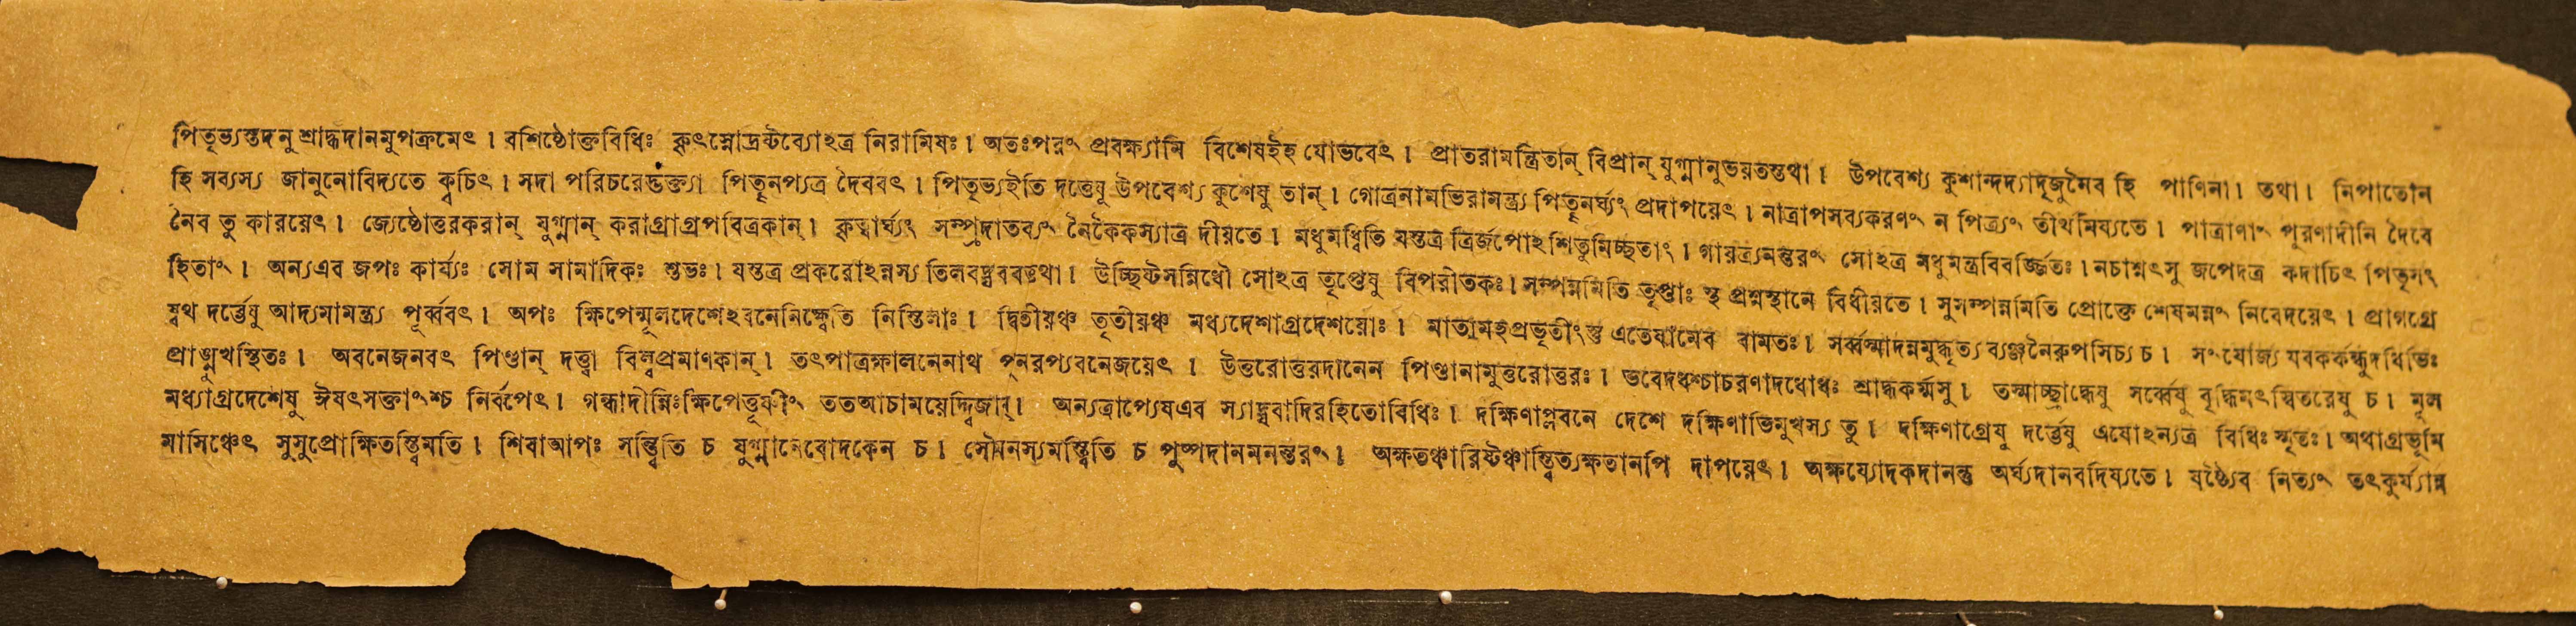 পিতৃভ্যস্তদনু শ্রাদ্ধদানমুপক্রমেৎ । বশিষ্ঠোক্তবিধিঃ কৃৎস্নোদ্রষ্টব্যোঽত্র নিরামিষঃ । অতঃপরং প্রবক্ষ্যামি বিশেষইহ যোভবেৎ । প্রাতরামন্ত্রিতান্ বিপ্রান্ যুগ্মানুভয়তস্তথা । উপবেশ্য কুশান্দদ্যাদৃজুনৈব হি পাণিনা । তথা । নিপাতোন
হি সব্যস্য জানুনোবিদ্যতে ক্বচিৎ । সদা পরিচরেদ্ভক্ত্যা পিতৄনপ্যত্র দৈববৎ । পিতৃভ্যইতি দত্তেষু উপবেশ্য কুশেষু তান্ । গোত্রনামভিরামন্ত্র্য পিতৄনর্ঘ্যং প্রদাপয়েৎ । নাত্রাপসব্যকরণং ন পিত্র্যং তীর্থমিষ্যতে । পাত্রাণাং পূরণাদীনি দৈবে
নৈব তু কারয়েৎ । জ্যেষ্ঠোত্তরকরান্ যুগ্মান্ করাগ্রাগ্রপবিত্রকান্ । কৃত্বার্ঘ্যং সম্প্রদাতব্যং নৈকৈকস্যাত্র দীয়তে । মধুমধ্বিতি যস্তত্র ত্রির্জপোঽশিতুমিচ্ছতাং । গায়ত্র্যনন্তরং সোঽত্র মধুমন্ত্রবিবর্জ্জিতঃ । নচাশ্নৎসু জপেদত্র কদাচিৎ পিতৃসং
হিতাং । অন্যএব জপঃ কার্য্যঃ সোম সামাদিকঃ শুভঃ । যস্তত্র প্রকরোঽন্নস্য তিলবদ্যববত্তথা । উচ্ছিষ্টসন্নিধৌ সোঽত্র তৃপ্তেষু বিপরীতকঃ । সম্পন্নমিতি তৃপ্তাঃ স্থ প্রশ্নস্থানে বিধীয়তে । সুসম্পন্নমিতি প্রোক্তে শেষমন্নং নিবেদয়েৎ । প্রাগগ্রে
ষ্বথ দর্ভেষু আদ্যমামন্ত্র্য পূর্ব্ববৎ । অপঃ ক্ষিপেন্মূলদেশেঽবনেনিক্ষ্বেতি নিস্তিলাঃ । দ্বিতীয়ঞ্চ তৃতীয়ঞ্চ মধ্যদেশাগ্রদেশয়োঃ । মাতামহপ্রভৃতীংস্তু এতেষামেব বামতঃ । সর্ব্বস্মাদন্নমুদ্ধৃত্য ব্যঞ্জনৈরুপসিচ্য চ । সংযোজ্য যবকর্কন্ধুদধিভিঃ
প্রাঙ্মুখস্থিতঃ । অবনেজনবৎ পিণ্ডান্ দত্ত্বা বিল্বপ্রমাণকান্ । তৎপাত্রক্ষালনেনাথ পুনরপ্যবনেজয়েৎ । উত্তরোত্তরদানেন পিণ্ডানামুত্তরোত্তরঃ । ভবেদধশ্চাচরণাদধোধঃ শ্রাদ্ধকর্ম্মসু । তস্মাচ্ছ্রাদ্ধেষু সর্ব্বেষু বৃদ্ধিমৎস্বিতরেষু চ । মূল
মধ্যাগ্রদেশেষু ঈষৎসক্তাংশ্চ নির্বপেৎ । গন্ধাদীন্নিঃক্ষিপেত্তূষ্ণীং ততআচাময়েদ্দ্বিজান্ । অন্যত্রাপ্যেষএব স্যাদ্যবাদিরহিতোবিধিঃ । দক্ষিণাপ্লবনে দেশে দক্ষিণাভিমুখস্য তু । দক্ষিণাগ্রেষু দর্ভেষু এষোঽন্যত্র বিধিঃ স্মৃতঃ । অথাগ্রভূমি
মাসিঞ্চেৎ সুসুপ্রোক্ষিতমস্ত্বিতি । শিবাআপঃ সন্ত্বিতি চ যুগ্মানেবোদকেন চ । সৌমনস্যমস্ত্বিতি চ পুষ্পদানমনন্তরং । অক্ষতঞ্চারিষ্টঞ্চাস্ত্বিত্যক্ষতানপি দাপয়েৎ । অক্ষয্যোদকদানন্তু অর্ঘ্যদানবদিষ্যতে । ষষ্ঠ্যৈব নিত্যং তৎকুর্য্যান্ন